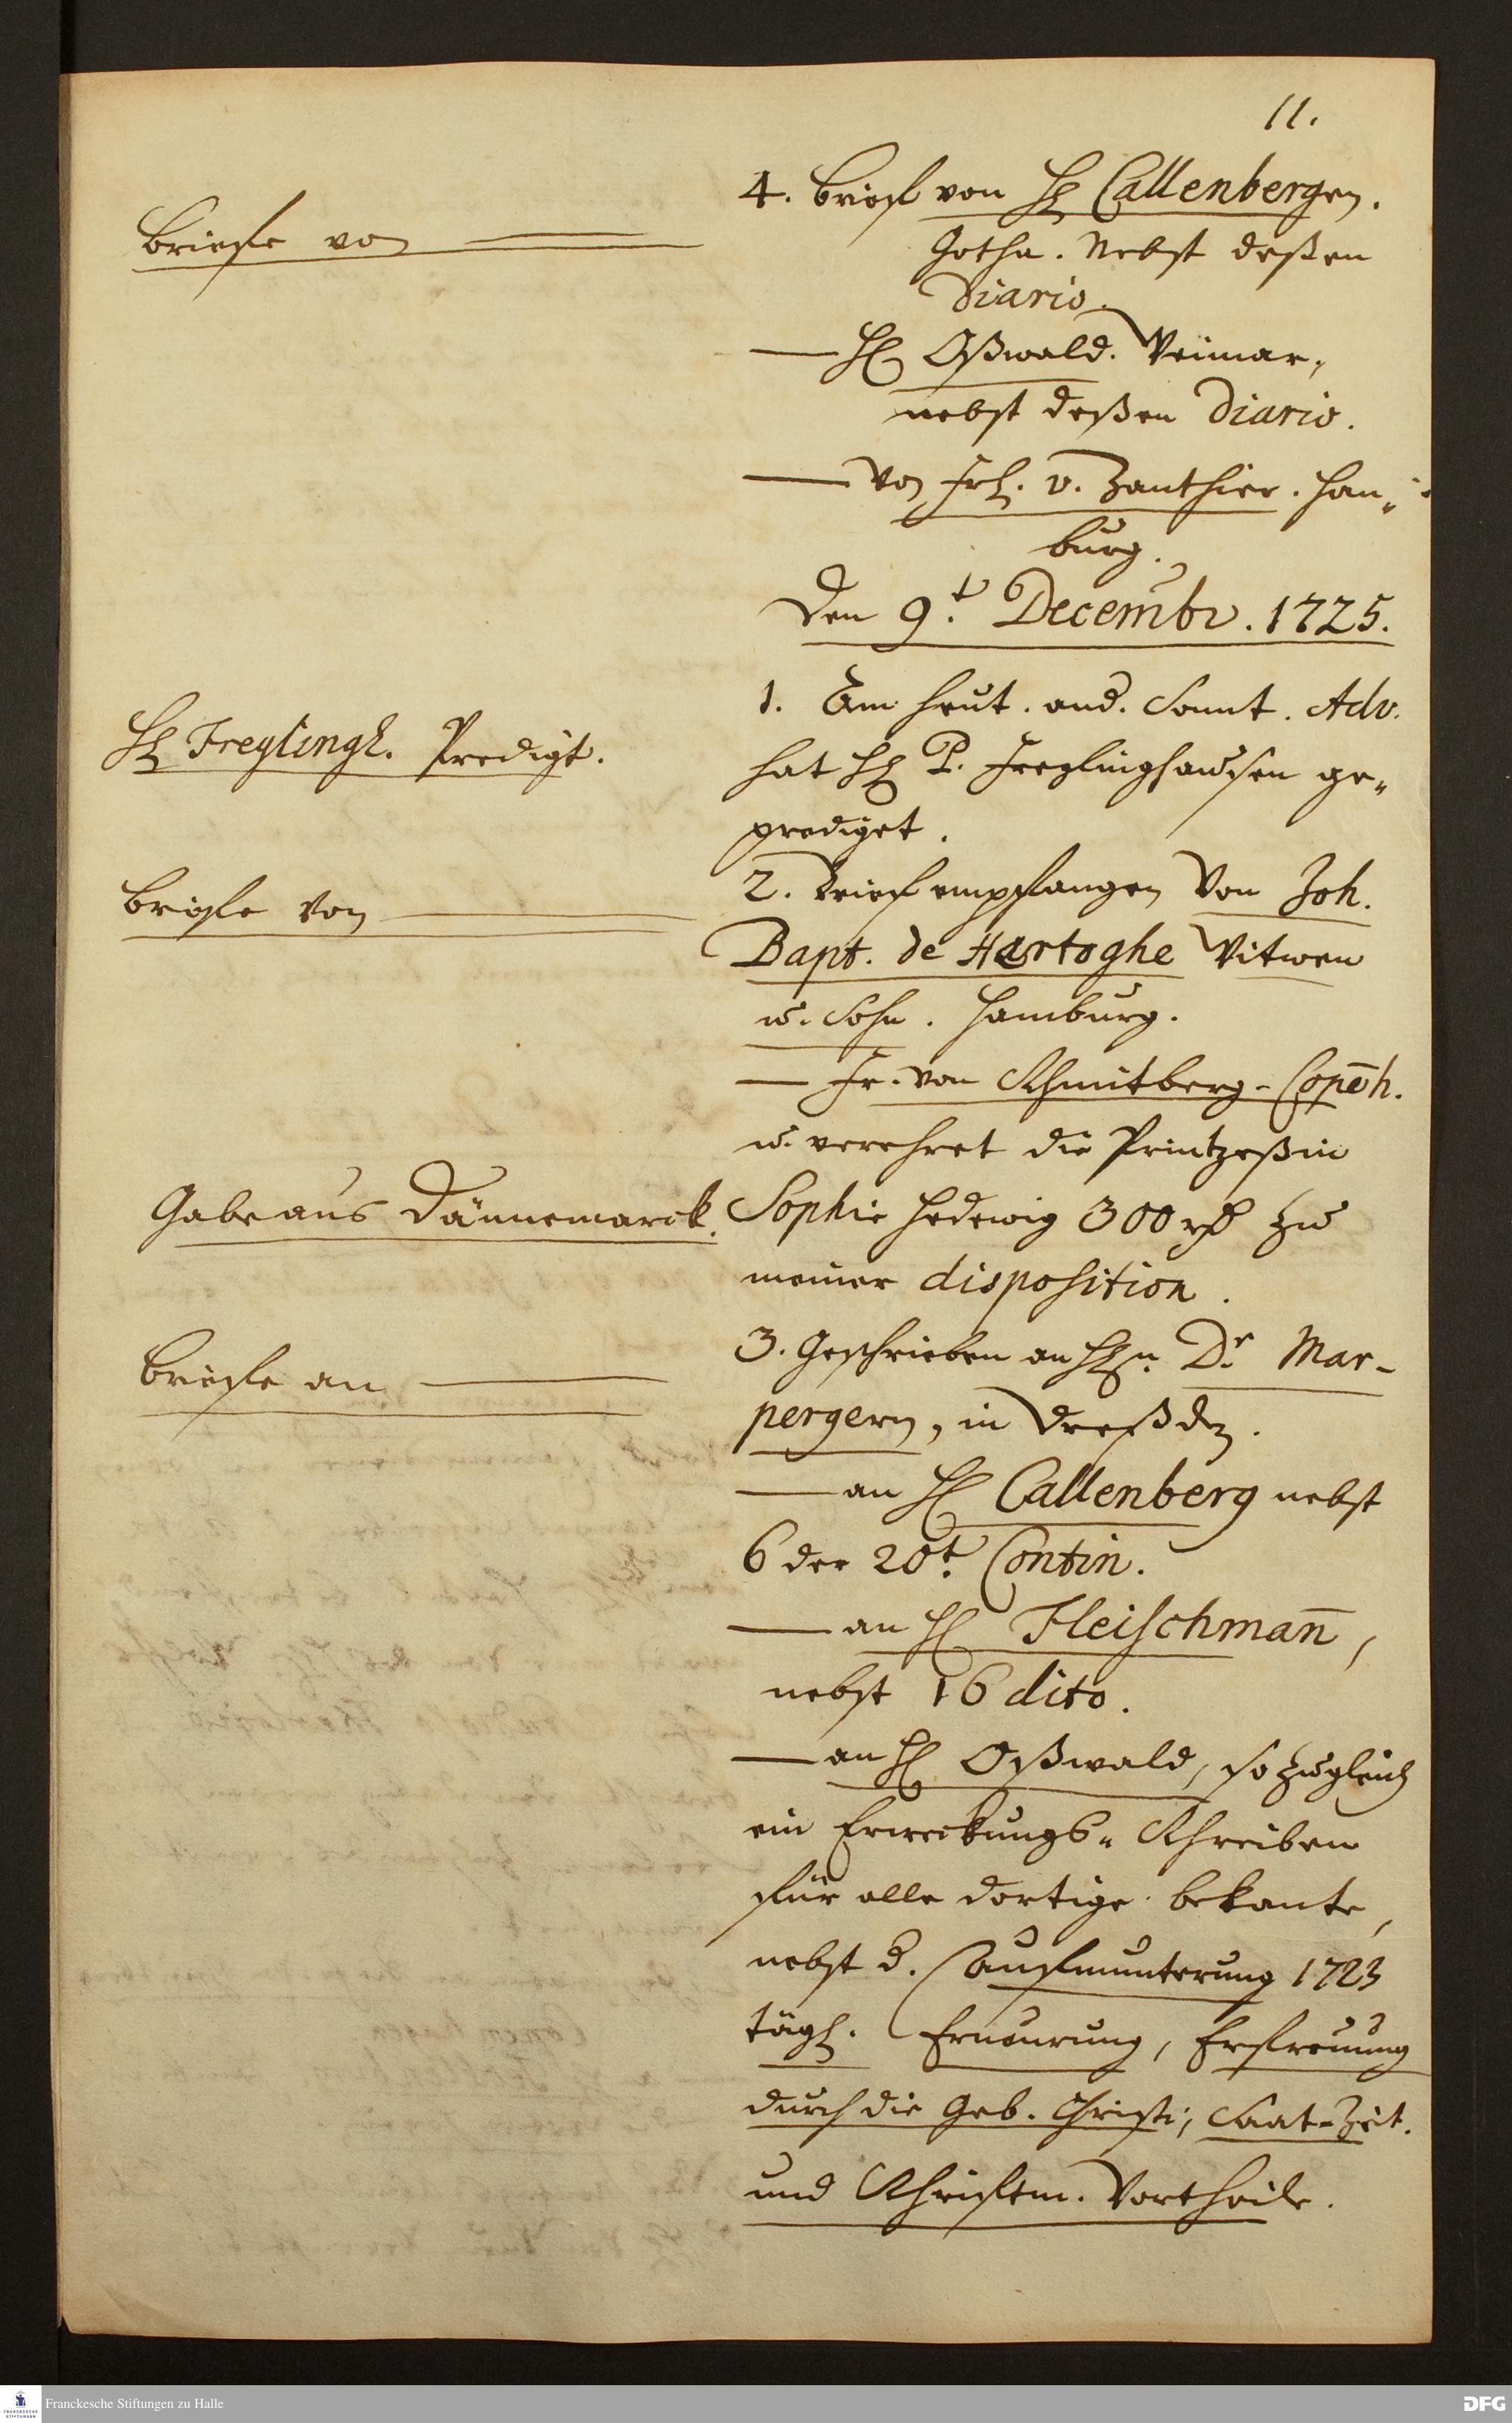 11.
Briefe von
4. Brief von H. Callenbergen.
Gotha. Nebst deßen
Diario.
— H. Oßwald. Weimar,
nebst deßen Diario.
— Von Frl. v. Zanthier. Ham„
burg.
Den 9.t Decembr. 1725.
H. Freylingh. Predigt.
1. Am heut. and. Sonnt. Adv.
hat H. P. Freylinghausen ge„
prediget.
Briefe von
2. Brief empfangen Von Joh.
Bapt. de Hertoghe Witwen
u. Sohn. Hamburg.
— Fr. von Schmitberg - Copēh.
u. verehret die Printzeßin
Gabe aus Dännemarck.
Sophie Hedewig 300 rth zu
meiner disposition.
Briefe an
3. Geschrieben an HErn. Dr. Mar-
pergern, in Dreßden.
— an H. Callenberg nebst
6 der 20t. Contin.
— an H. Fleischman̄,
nebst 16 dito.
— an H. Oßwald, so zugleich
ein Erweckungs„ Schreiben
für alle dortige bekante,
nebst d. Aufmunterung 1723
tägl. Erneurung, Erfreuung
durch die Geb. Christi, Saat-Zeit.
und Schriftm. Vortheile.
Franckesche Stiftungen zu Halle
DFG